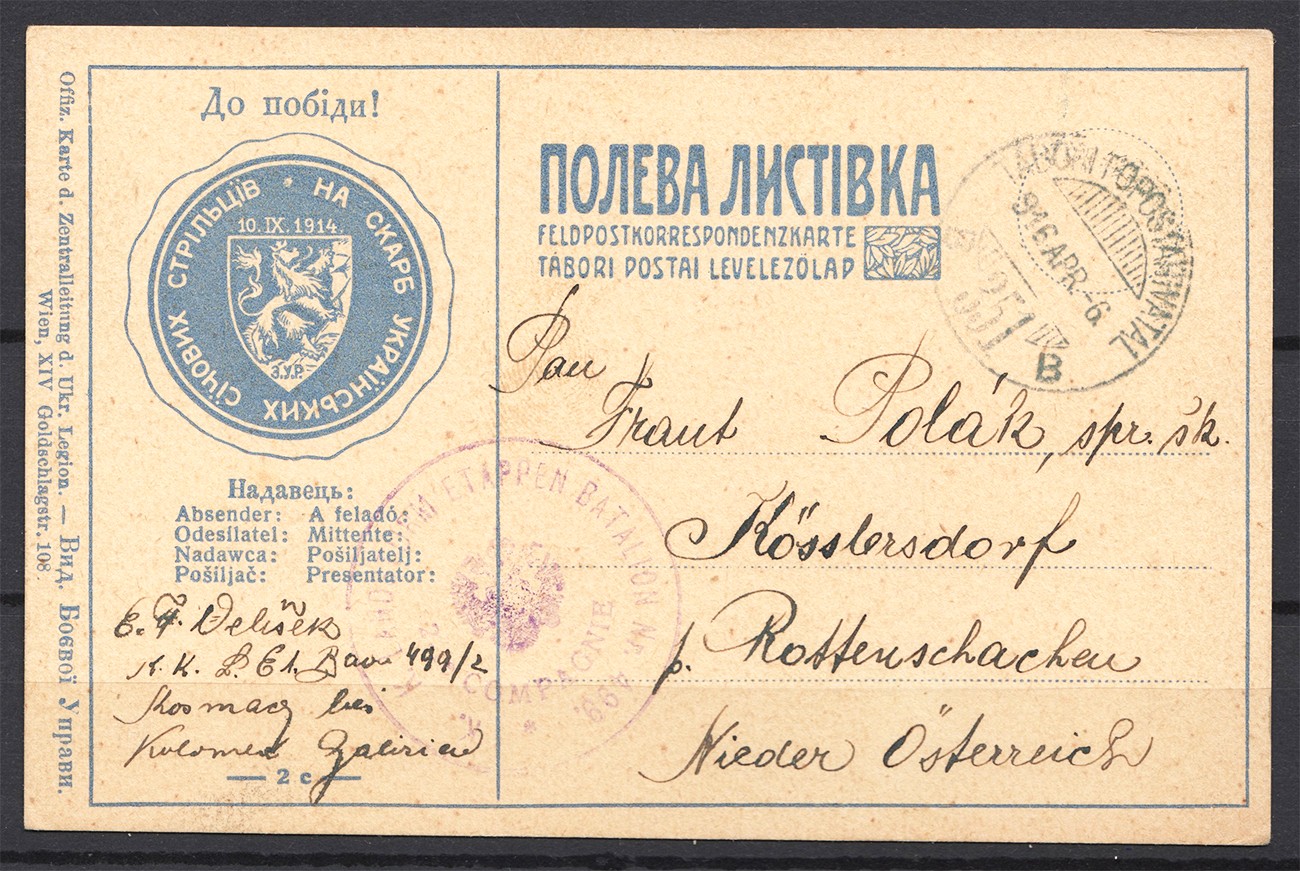 Offiz. Karte d. Zentralleitung d. Ukr. Legion. — Вид. Боєвої Управи.
Wien, XIV Goldschlagstr. 108.
До побіди!
* НА СКАРБ УКРАЇНСЬКИХ СІЧОВИХ СТРІЛЬЦІВ
10. IX. 1914
З.У.Р.
Надавець:
Absender: A feladó:
Odesílatel: Mittente:
Nadawca: Pošiljatelj:
Pošiljač: Presentator:
E. F. Velíšek
K. K. L. Et. Baon 499/2
Kosmacz bei
Kolomea Galizien
— 2 c —
ПОЛЕВА ЛИСТІВКА
FELDPOSTKORRESPONDENZKARTE
TÁBORI POSTAI LEVELEZŐLAP
TÁBORI FŐPOSTAHIVATAL
916 APR. -6.
351
B
Pan
Frant Polák, spr. šk.
Kösslersdorf
p. Rottenschachen
Nieder Österreich
K. K. LANDSTURM ETAPPEN BATAILLON Nr. 499.
2. COMPAGNIE